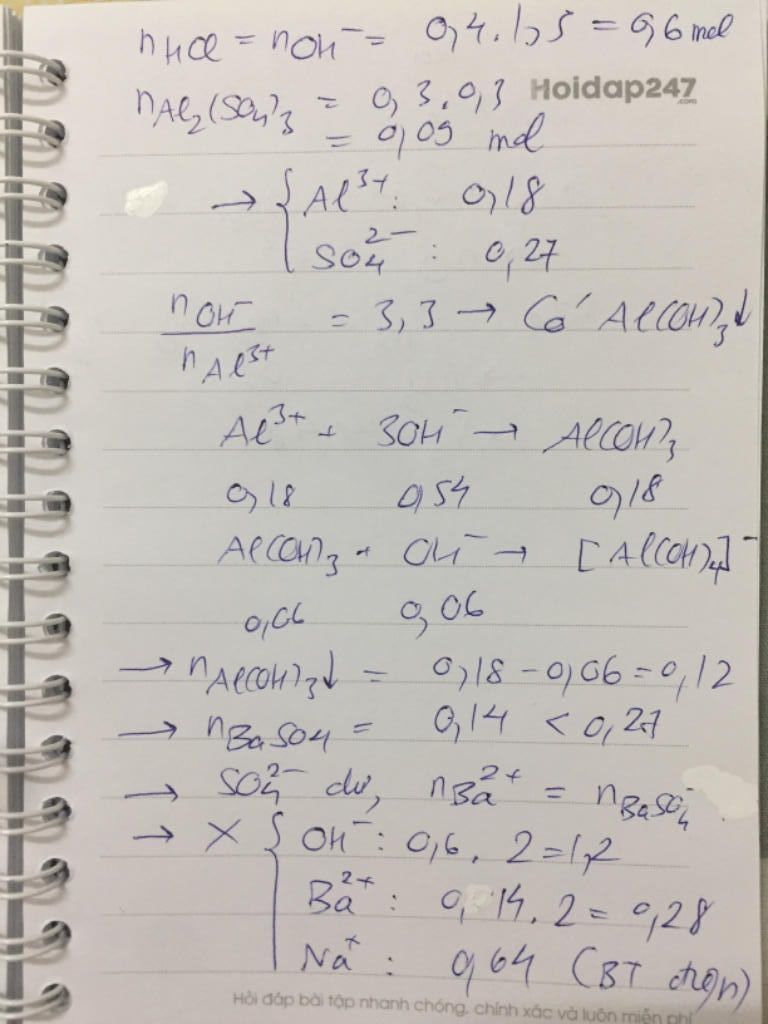 nHCl = nOH⁻ = 0,4.1,5 = 0,6 mol
nAl₂(SO₄)₃ = 0,3.0,3 Hoidap247
.com
= 0,09 mol
→ { Al³⁺: 0,18
SO₄²⁻ : 0,27
nOH⁻ / nAl³⁺ = 3,3 → Có Al(OH)₃↓
Al³⁺ + 3OH⁻ → Al(OH)₃
0,18 0,54 0,18
Al(OH)₃ + OH⁻ → [Al(OH)₄]⁻
0,06 0,06
→ nAl(OH)₃↓ = 0,18 - 0,06 = 0,12
→ nBaSO₄ = 0,14 < 0,27
→ SO₄²⁻ dư, nBa²⁺ = nBaSO₄
→ X { OH⁻: 0,6. 2 = 1,2
Ba²⁺ : 0,14. 2 = 0,28
Na⁺ : 0,64 (BT đtện)
Hỏi đáp bài tập nhanh chóng, chính xác và luôn miễn phí